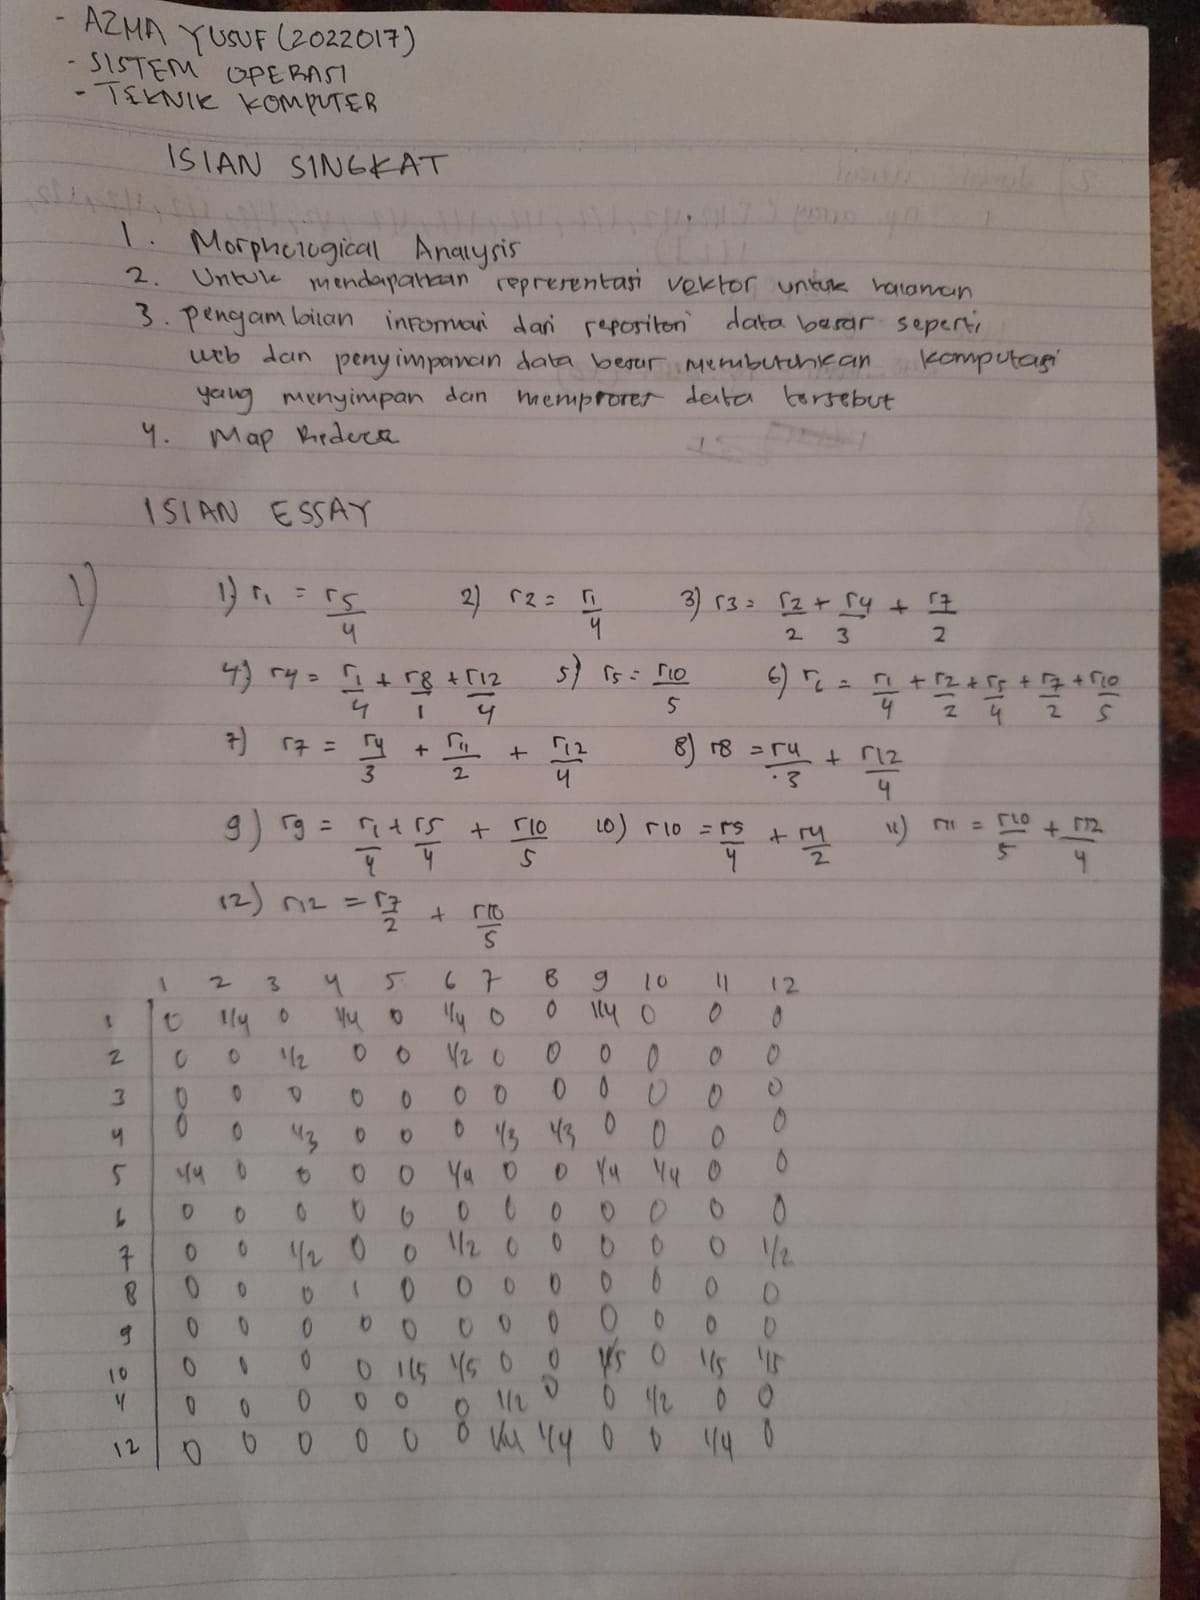 - AZMA YUSUF (2022017)
- SISTEM OPERASI
- TEKNIK KOMPUTER
ISIAN SINGKAT
1. Morphological Analysis
2. Untuk mendapatkan representasi vektor untuk halaman
3. pengambilan informasi dari repositori data besar seperti
web dan penyimpanan data besar membutuhkan komputasi
yang menyimpan dan memproses data tersebut
4. Map Reduce
ISIAN ESSAY
1)
1) r1 = r5/4 2) r2 = r1/4 3) r3 = r2/2 + r4/3 + r7/2
4) r4 = r1/4 + r8/1 + r12/4 5) r5 = r10/5 6) r6 = r1/4 + r2/2 + r5/4 + r7/2 + r10/5
7) r7 = r4/3 + r11/2 + r12/4 8) r8 = r4/3 + r12/4
9) r9 = r1/4 + r5/4 + r10/5 10) r10 = r5/4 + r4/2 11) r11 = r10/5 + r12/4
12) r12 = r7/2 + r10/5
1 2 3 4 5 6 7 8 9 10 11 12
1 0 1/4 0 1/4 0 1/4 0 0 1/4 0 0 0
2 0 0 1/2 0 0 1/2 0 0 0 0 0 0
3 0 0 0 0 0 0 0 0 0 0 0 0
4 0 0 1/3 0 0 0 1/3 1/3 0 0 0 0
5 1/4 0 0 0 0 1/4 0 0 1/4 1/4 0 0
6 0 0 0 0 0 0 0 0 0 0 0 0
7 0 0 1/2 0 0 1/2 0 0 0 0 0 1/2
8 0 0 0 1 0 0 0 0 0 0 0 0
9 0 0 0 0 0 0 0 0 0 0 0 0
10 0 0 0 0 1/5 1/5 0 0 1/5 0 1/5 1/5
11 0 0 0 0 0 0 1/2 0 0 1/2 0 0
12 0 0 0 0 0 0 1/4 1/4 0 0 1/4 0